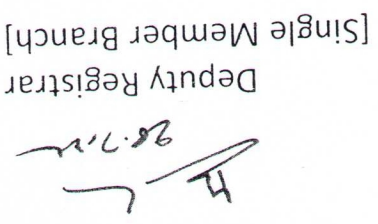 Deputy Registrar
[Single Member Branch]